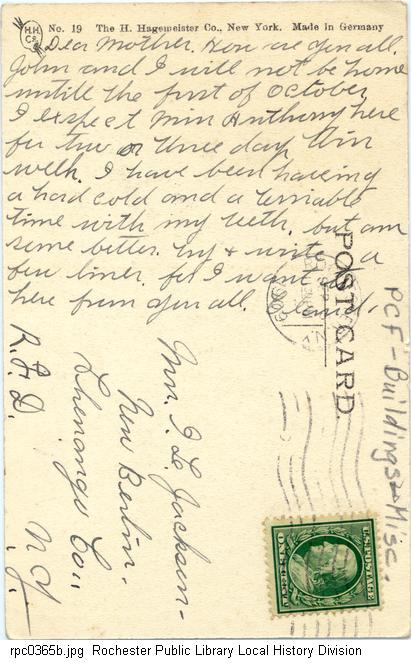 H.H. Co. No. 19 The H. Hagemeister Co., New York. Made in Germany
Dear Mother. How are you all.
John and I will not be home
untill the first of October
I expect Mrs Anthony here
for two or three day this
week. I have been haveing
a hard cold and a terriable
time with my teeth. but am
some better. try + write a
few lines. for I want to
here from you all.
POST CARD
Mrs. I. L. Jackson-
New Berlin-
Chenango Co..
R. F. D. N. Y.
PCF-Buildings-Misc.
U.S. POSTAGE
ONE CENT
rpc0365b.jpg Rochester Public Library Local History Division